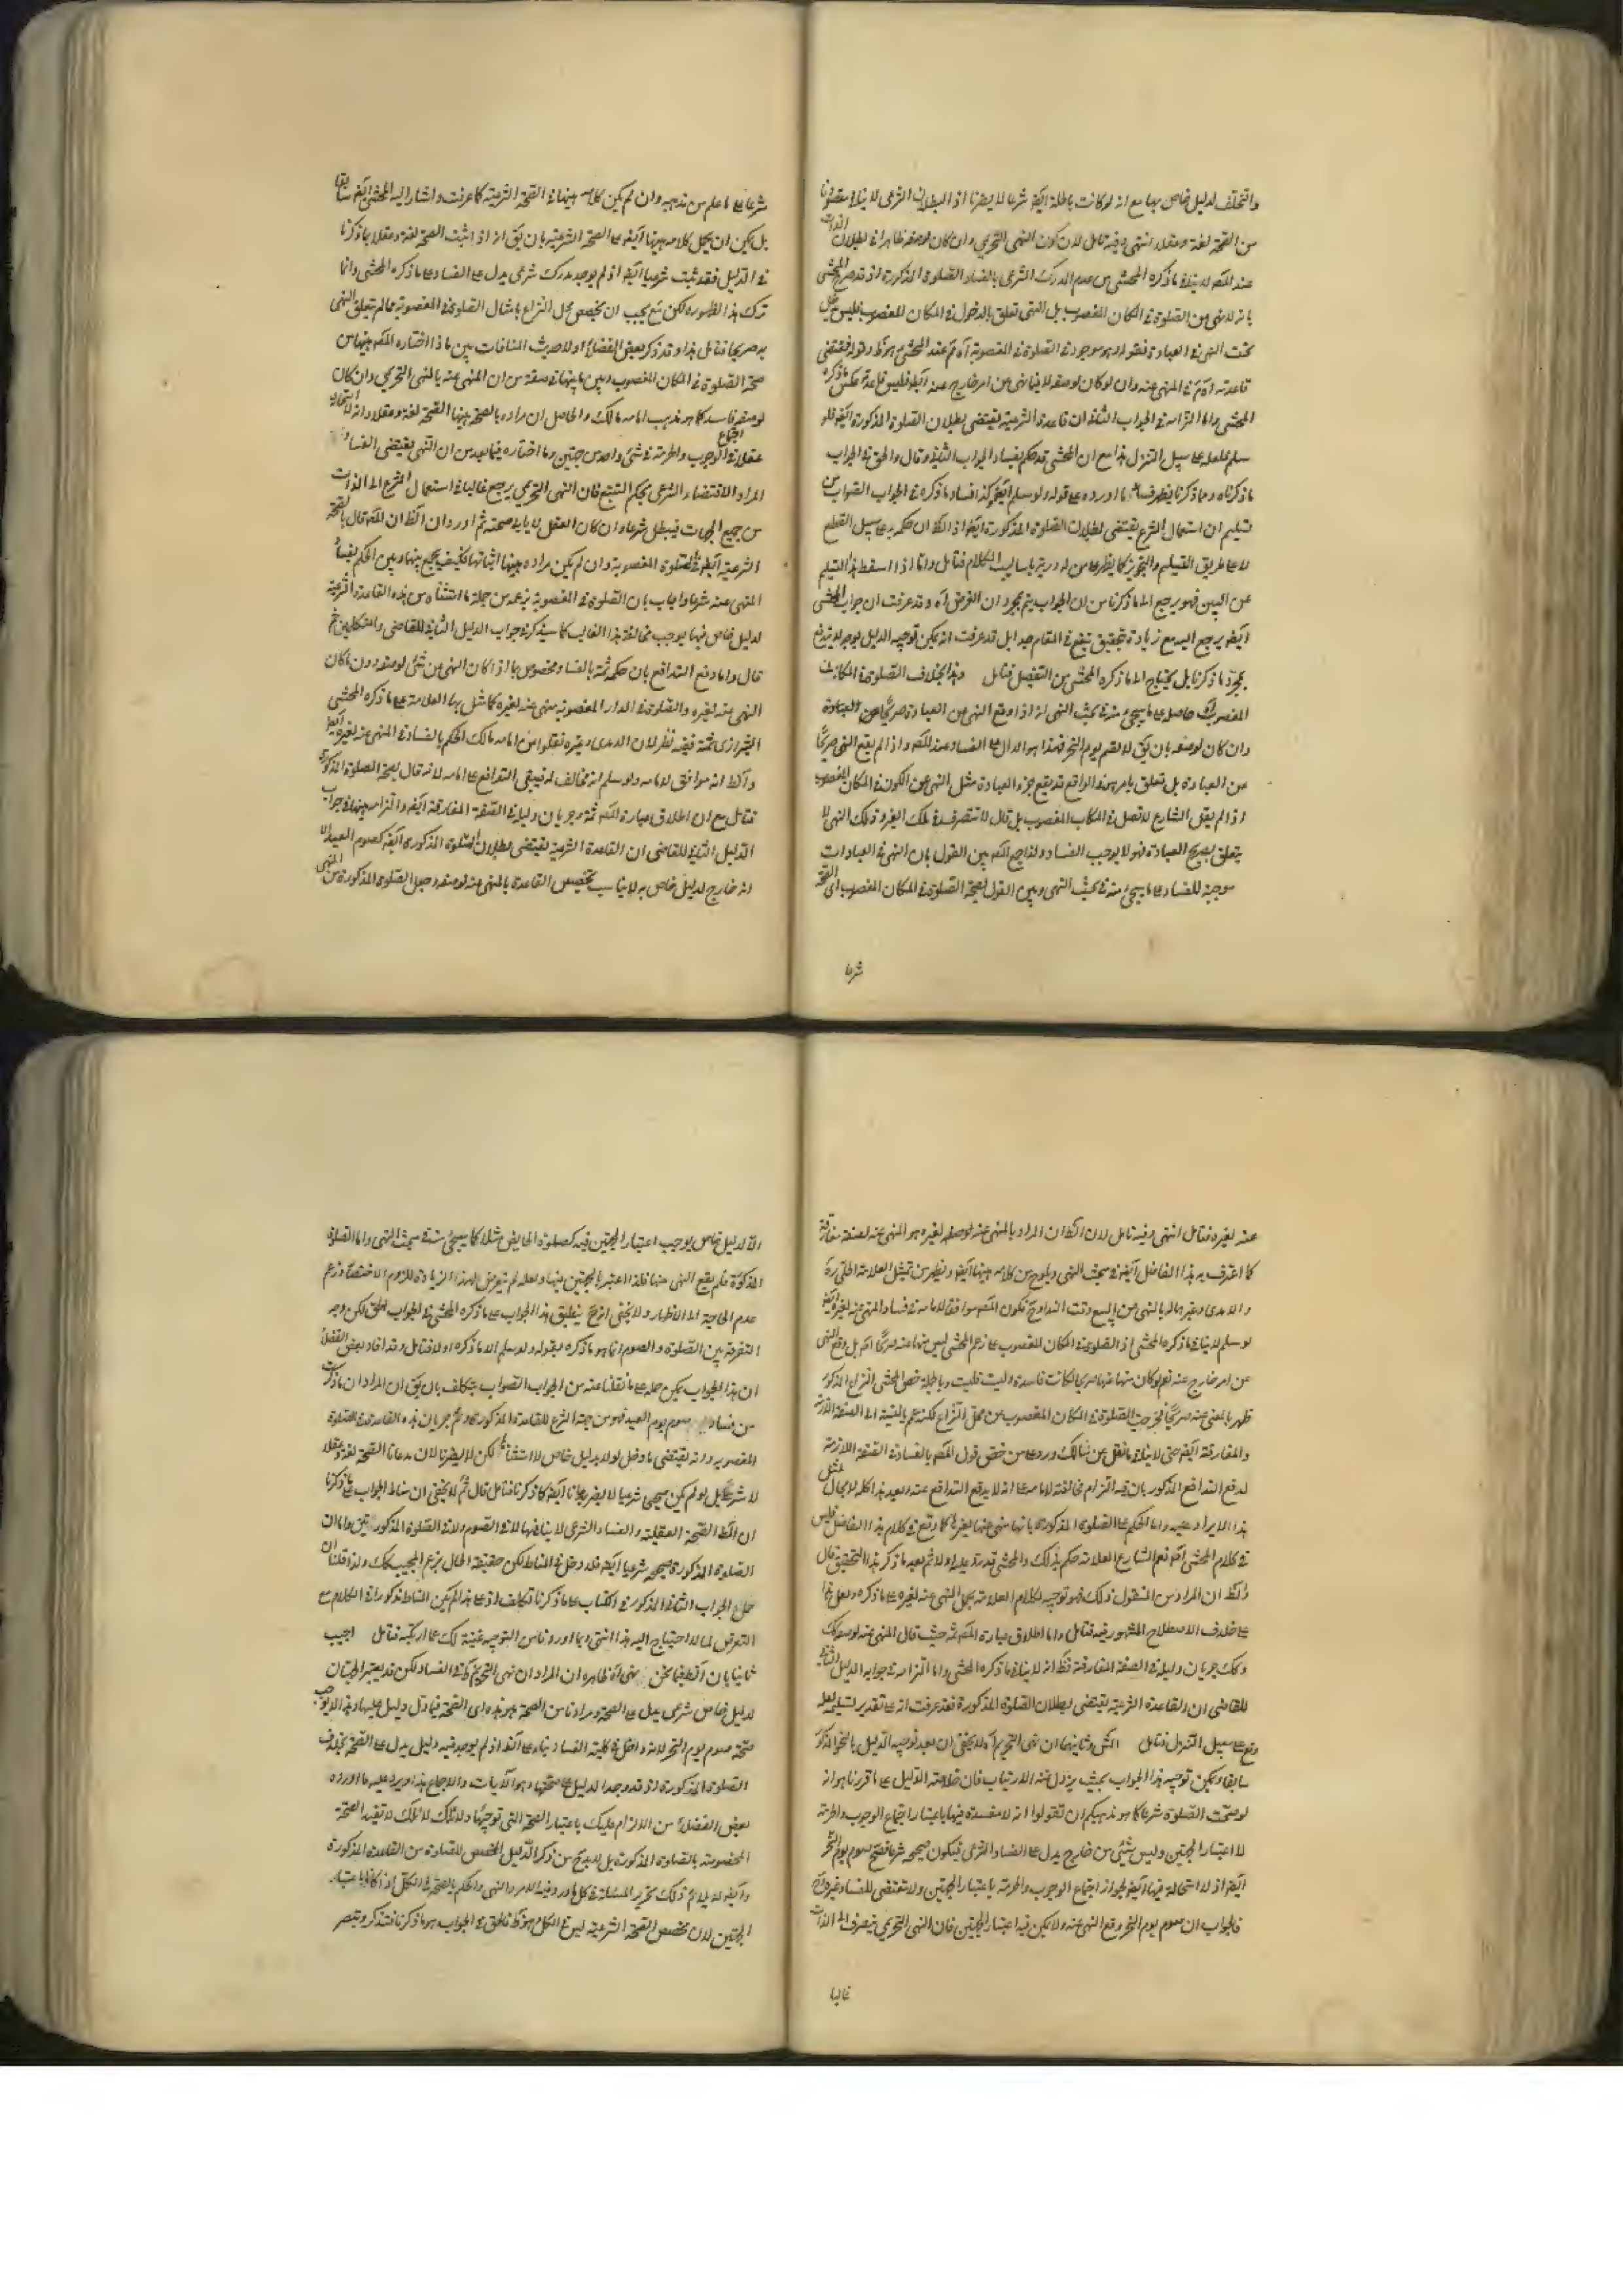 والتخلف لدليل خاص بها مع انه لو كانت باطلة ايضا شرعا لا يضرنا اذ البطلان الشرعى لا ينافى مقصودنا
من الصحة لغة وعقلا انتهى وفيه تامل لان كون النهى التحريمى وان كان لوصفه ظاهرا فى بطلان الذات
عند المصنف لا ينافى ما ذكره المحشى من عدم المدرك الشرعى بالفساد الصلوة المذكورة اذ قد صرح المحشى
بانه لا نهى عن الصلوة فى المكان المغصوب بل النهى تعلق بالدخول فى المكان المغصوب فليس
تحت النهى فى العبادة فقوله وهو موجود فى الصلوة فى المغصوبة آه ثم عند المحشى
قاعدته آه فى المنهى عنه وان لو كان لوصفه لا فيما نهى عن امر خارج عنه
المحشى واما التزامه فى الجواب الثانى ان قاعدة الشرعية يقتضى بطلان الصلوة المذكورة
سلم فلعله على سبيل التنزل هذا مع ان المحشى قد حكم بفساد الجواب الثانى وقال والحق فى الجواب
ما ذكرناه وما ذكرنا يظهر فساد ما اورده على قوله ولو سلم ايضا وكذا فساد ما ذكره فى الجواب الصواب من
تسليم ان استعمال الشرع يقتضى بطلان الصلوة المذكورة ايضا اذ الظ ان حكمه به على سبيل القطع
لا على طريق التسليم والتجويز كما يظهر على من له دربة باساليب الكلام فتامل واما اذا اسقط هذا التسليم
عن البين فهو يرجع الى ما ذكرنا من ان الجواب يتم بمجرد ان الغرض آه وقد عرفت ان جواب المحشى
ايضا يرجع اليه مع زيادة تحقيق ينفع فى المقام
بمجرد ما ذكرنا بل يحتاج الى ما ذكره المحشى من التفصيل فتامل وهذا بخلاف الصلوة فى المكان
المغصوب حاصله على ما يجئ منه فى بحث النهى انه اذا وقع النهى عن العبادة صريحا عن العبادة
وان كان لوصفه بان يقال لا تصم يوم النحر فهذا هو الدال على الفساد عند المصنف واذا لم يقع النهى صريحا
عن العبادة بل تعلق بامر هو فى الواقع قد يقع جزء العبادة مثل النهى عن الكون فى المكان المغصوب
اذا لم يقل الشارع لا تصل فى المكان المغصوب بل قال لا تتصرف فى ملك الغير وذلك النهى لا
يتعلق بصريح العبادة فهو لا يوجب الفساد ولذا جمع المصنف بين القول بان النهى فى العبادات
موجبة للفساد على ما يجئ منه فى بحث النهى وبين القول بصحة الصلوة فى المكان المغصوب اى الصحة
شرعا
شرعا على ما علم من مذهبه وان لم يكن كلامه هيهنا فى الصحة الشرعية كما عرفت واشار اليه المحشى ايضا سابقا
بل يمكن ان يحمل كلامه هيهنا ايضا على الصحة الشرعية بان يق انه اذا ثبت الصحة لغة وعقلا بما ذكرنا
فى الدليل فقد ثبت شرعيا ايضا اذ لم يوجد مدرك شرعى يدل على الفساد على ما ذكره المحشى وانما
ترك هذا لظهوره لكن ح يجب ان يخصص محل النزاع بامثال الصلوة فى المغصوبة مما لم يتعلق النهى
به صريحا فتامل هذا وقد ذكر بعض الفضلاء اولا حديث المنافات بين ما اختاره المصنف هيهنا من
صحة الصلوة فى المكان المغصوب وبين ما
لوصفه فاسد كما هو مذهب امامه مالك والحاصل ان مراده بالصحة هيهنا الصحة لغة وعقلا وانه لا استحالة
عقلا فى اجتماع الوجوب والحرمة فى شئ واحد من جهتين وما اختاره فيما بعد من ان النهى يقتضى الفساد
المراد الاقتضاء الشرعى بحكم التتبع فان النهى التحريمى يرجع غالبا فى استعمال الشرع الى الذات
من جميع الجهات فيبطل شرعا وان كان العقل لا يابى صحته ثم اورد ان الظ ان المصنف قال بالصحة
الشرعية ايضا فى الصلوة المغصوبة وان لم يكن مراده هيهنا اثباتها فكيف يجمع بينها وبين الحكم بفساد
المنهى عنه شرعا واجاب بان الصلوة فى المغصوبة
لدليل خاص فيها يوجب مخالفة هذا الغالب كما سيذكر فى جواب الدليل الثانى للقاضى والمتكلمين ثم
قال واما دفع التدافع بان حكمه ثمة بالفساد مخصوص بما اذا كان النهى عن شئ لوصفه دون ما كان
النهى عنه لغيره والصلوة فى الدار المغصوبة منهى عنه لغيره كما مثل بها العلامة على ما ذكره المحشى
الشيرازى ثمة ففيه نظر لان الامدى وغيره نقلوا عن امامه مالك الحكم بالفساد فى المنهى عنه لغيره ايضا
والظ انه موافق لامامه ولو سلم انه مخالف له فيبقى التدافع على امامه لانه قال بصحة الصلوة المذكورة
فتامل مع ان اطلاق عبارة المصنف ثمة وجريان دليله فى الصفة المفارقة ايضا والتزامه هيهنا فى جواب
الدليل الثانى للقاضى ان القاعدة الشرعية يقتضى بطلان الصلوة المذكورة ايضا كصوم العيد الا
انه خارج لدليل خاص به لا يناسب تخصيص القاعدة بالمنهى عنه لوصفه وجعل الصلوة المذكورة من المنهى
عنه لغيره فتامل انتهى وفيه تامل لان الظ ان المراد بالمنهى عنه لوصفه لغيره هو المنهى عنه لصفة مفارقة
كما اعترف به هذا الفاضل ايضا فى مبحث النهى ويلوح من كلامه هيهنا ايضا ويظهر من تمثيل العلامة الحلى ره
والامدى وغيرهما له بالنهى عن البيع وقت النداء فح يكون المصنف موافقا لامامه فى فساد المنهى عنه لغيره ايضا
لو سلم لا ينافى ما ذكره المحشى اذ الصلوة فى المكان المغصوب على زعم المحشى ليس منها عنه صريحا اصلا بل وقع النهى
عن امر خارج عنه نعم لو كان منها عنها صريحا لكانت فاسدة وليت فليت وبالجملة خص المحشى النزاع المذكور
والمفارقة ايضا حتى لا ينافى ما نقل عن مالك ورد على من خصص قول المصنف بالفساد فى الصفة اللازمة
لدفع التدافع المذكور بان فيه التزام مخالفة لامامه على انه لا يدفع التدافع عنه وبعد هذا كله لا مجال لمثل
هذا الايراد عليه واما الحكم على الصلوة المذكورة بانها منهى عنها لغيرها كما وقع فى كلام هذا الفاضل فليس
فى كلام المحشى اصلا نعم الشارح العلامة حكم بذلك والمحشى قد رد عليه اولا ثم بعد ما ذكر هذا التحقيق قال
والظ ان المراد من المنقول ذلك فهو توجيه لكلام العلامة بحمل النهى عنه لغيره على ما ذكره وجعل هذا
على خلاف الاصطلاح المشهور فيه فتامل واما اطلاق عبارة المصنف ثمة حيث قال المنهى عنه لوصفه كذلك
وكك جريان دليله فى الصفة المفارقة فظ انه لا ينافى ما ذكره المحشى واما التزامه فى جوابه الدليل الثانى
للقاضى ان القاعدة الشرعية يقتضى بطلان الصلوة المذكورة فقد عرفت انه على تقدير تسليمه لعله
وقع على سبيل التنزل فتامل الش وثانيهما ان نهى التحريم آه لا يخفى ان بعد توجيه الدليل بالنحو المذكور
سابقا ويمكن توجيه هذا الجواب بحيث يزول عنه الارتياب فان خلاصة الدليل على ما قررنا هو انه
لو صحت الصلوة شرعا كما هو مذهبكم ان تقولوا انه لا مفسدة فيها باعتبار اجتماع الوجوب والحرمة
لاعتبار الجهتين وليس شئ من خارج يدل على الفساد الشرعى فيكون صحيحة شرعا فصح صوم يوم النحر
ايضا اذ لا استحالة فيه ايضا لجواز اجتماع الوجوب والحرمة باعتبار الجهتين ولا مقتضى للفساد غيره ح
فالجواب ان صوم يوم النحر وقع النهى عنه ولا يمكن فيه اعتبار الجهتين فان النهى التحريمى ينصرف الى الذات
غالبا
الا لدليل خاص يوجب اعتبار الجهتين فيه كصلوة الحايض مثلا كما سيجئ منه فى مبحث النهى واما الصلوة
المذكورة فلم يقع النهى عنها فلذا اعتبر الجهتين فيها ولعله لم يتعرض لهذه الزيادة للزوم الاختصار وزعم
عدم الحاجة الى الاظهار ولا يخفى انه ح ينطبق هذا الجواب على ما ذكره المحشى فى الجواب الحق لكن وجه
التفرقة بين الصلوة والصوم انما هو ما ذكره بقوله ولو سلم الا ما ذكره اولا فتامل وقد افاد بعض الفضلاء
ان هذا الجواب يمكن حمله على ما نقلنا عنه من الجواب الصواب بتكلف بان يق ان المراد ان ما ذكرت
من فساد صوم يوم العيد فهو من جهة الشرع للقاعدة المذكورة
المغصوبة وانه يقتضى ما دخل لولا بدليل خاص لاستثناء لكن لا يضرنا لان مدعانا الصحة لغة وعقلا
لا شرعا بل لو لم يكن صحيحا شرعيا لا يضر مدعانا ايضا كما ذكرنا فتامل قال ثم لا يخفى ان مناط الجواب على ما ذكرنا
ان الظ الصحة العقلية والفساد الشرعى لا ينافيها لا فى الصوم ولا فى الصلوة المذكورتين واما ان
الصلوة المذكورة صحيحة شرعيا ايضا فلا دخل فى المناط لكن حقيقة الحال بزعم المجيب كك ولذا قلنا ان
حمل الجواب الثانى المذكور فى الكتاب على ما ذكرنا تكلف اذ على هذا لم يكن المناط مذكورا فى الكلام مع
التعرض لما لا احتياج اليه هذا انتهى وبما اوردنا من التوجيه غنية لك عما ارتكبه فتامل اجيب
ثانيا بان الظ فيما نحن فيه آه ظاهره ان المراد ان نهى التحريم ظ فى الفساد لكن قد يعتبر الجهتان
لدليل خاص شرعى يدل على الصحة ومرادنا من الصحة هو هذه اى الصحة فيما دل دليل عليها وهذا لا يوجب
صحة صوم يوم النحر لانه داخل فى كلية الفساد بناء على انه اذ لم يوجد فيه دليل يدل على الصحة بخلاف
الصلوة المذكورة اذ قد وجد الدليل على صحتها وهو الآيات والاجماع هذا ويرد عليه ما اورده
بعض الفضلاء من الالزام عليك باعتبار الصحة التى توجبها دلائلك لا تفيد الصحة
المخصوصة بالصلوة المذكورة بل لا بد ح من ذكر الدليل المخصص للصلوة من القاعدة المذكورة
وايضا لا يلائم ذلك تحرير المسئلة فى كل ما ورد فيه الامر والنهى والحكم بالصحة فى الكل اذا كانا باعتبار
الجهتين لان مخصص الصحة الشرعية ليس فى الكل هو ظ فالحق فى الجواب هو ما ذكرنا فتذكر وتبصر